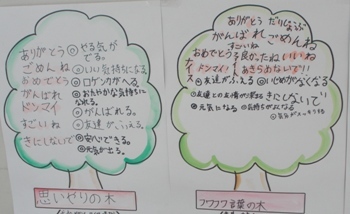 ありがとう ◎やる気がでる。
ごめんね ◎いい気持ちになる。
おめでとう ◎ロゲンカがへる。
がんばれ ◎おだやかな気持ちになれる。
ドンマイ ◎がんばれる。
すごいね ◎友達がふえる。
きにしないで ◎安心できる。
◎元気が出る。
思いやりの木
ありがとう だいじょうぶ
がんばれ ごめんね
すごいね
おめでとう 良かったね いいね
ドンマイ! あきらめないで!!
◎友達がふえる ◎いじめがなくなる
◎友達との友情が深まる きにしないで
◎元気になる ◎気持ちがよくなる
◎気分がスッキリする
フワフワ言葉の木